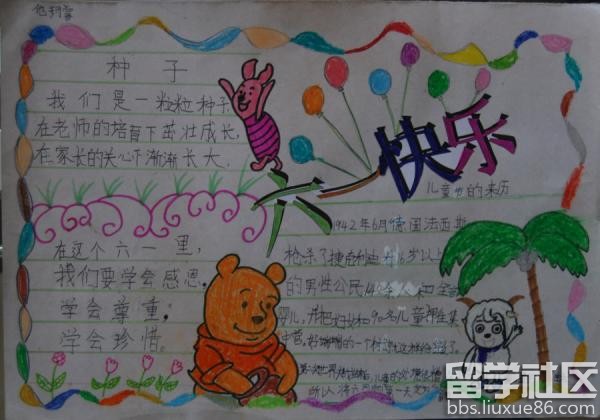 种子
我们是一粒粒种子
在老师的培育下茁壮成长，
在家长的关心下渐渐长大。
在这个六一里，
我们要学会感恩，
学会尊重；
学会珍惜。
六一快乐
儿童节的来历
1942年6月德国法西斯
枪杀了捷克利迪 16岁以上
的男性公民140余人和全部
婴儿，并把妇女和90名儿童押往集
中营。
所以
留学社区
bbs.liuxue86.com